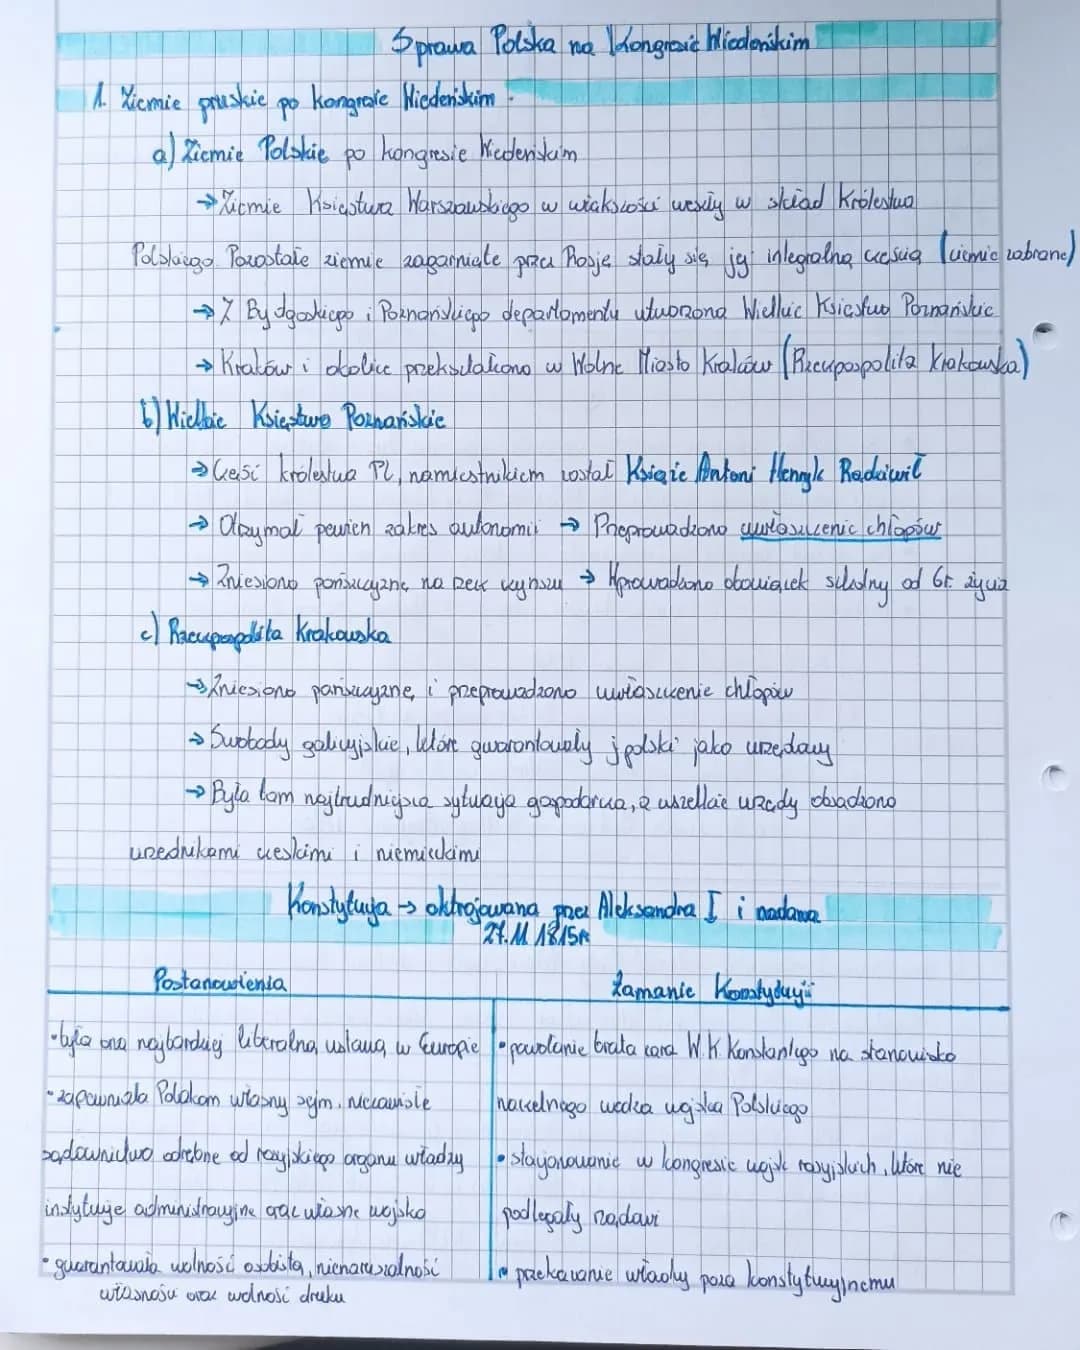 Sprawa Polska na Kongresie Wiedeńskim
1. Ziemie pruskie po kongresie Wiedeńskim
a) Ziemie Polskie po kongresie Wiedeńskim
→ Ziemie Księstwa Warszawskiego w większości weszły w skład Królestwa
Polskiego. Pozostałe ziemie zagarnięte przez Rosję stały się jej integralną częścią (ziemie zabrane)
→ Z Bydgoskiego i Poznańskiego departamentu utworzono Wielkie Księstwo Poznańskie
→ Kraków i okolice przekształcono w Wolne Miasto Kraków (Rzeczpospolita Krakowska)
b) Wielkie Księstwo Poznańskie
→ Część królestwa PL, namiestnikiem został Książe Antoni Henryk Radziwił
→ Otrzymał pewien zakres autonomii → Przeprowadzono uwłaszczenie chłopów
→ Zniesiono pańszczyznę na rzecz czynszu → Wprowadzono obowiązek szkolny od 6r. życia
c) Rzeczpospolita Krakowska
→ Zniesiono pańszczyznę i przeprowadzono uwłaszczenie chłopów
→ Swobody galicyjskie, które gwarantowały j polski jako urzędowy
→ Była tam najtrudniejsza sytuacja gospodarcza, a wszelkie urzędy obsadzono
urzednikami czeskimi i niemieckimi
Konstytucja → oktrojowana przez Aleksandra I i nadana
27.11 1815r
Postanowienia
Łamanie Konstytucji
• była ona najbardziej liberalną ustawą w Europie
• zapewniała Polakom własny sejm, niezawisłe
sądownictwo odrębne od rosyjskiego organu władzy
instytucje administracyjne oraz własne wojsko
• gwarantowała wolność osobistą, nienaruszalność
własności oraz wolność druku
• powołanie brata cara W.K. Konstantego na stanowisko
naczelnego wodza wojska Polskiego
• stacjonowanie w kongresie wojsk rosyjskich, które nie
podlegały rządowi
• przekazanie władzy poza konstytucyjnemu